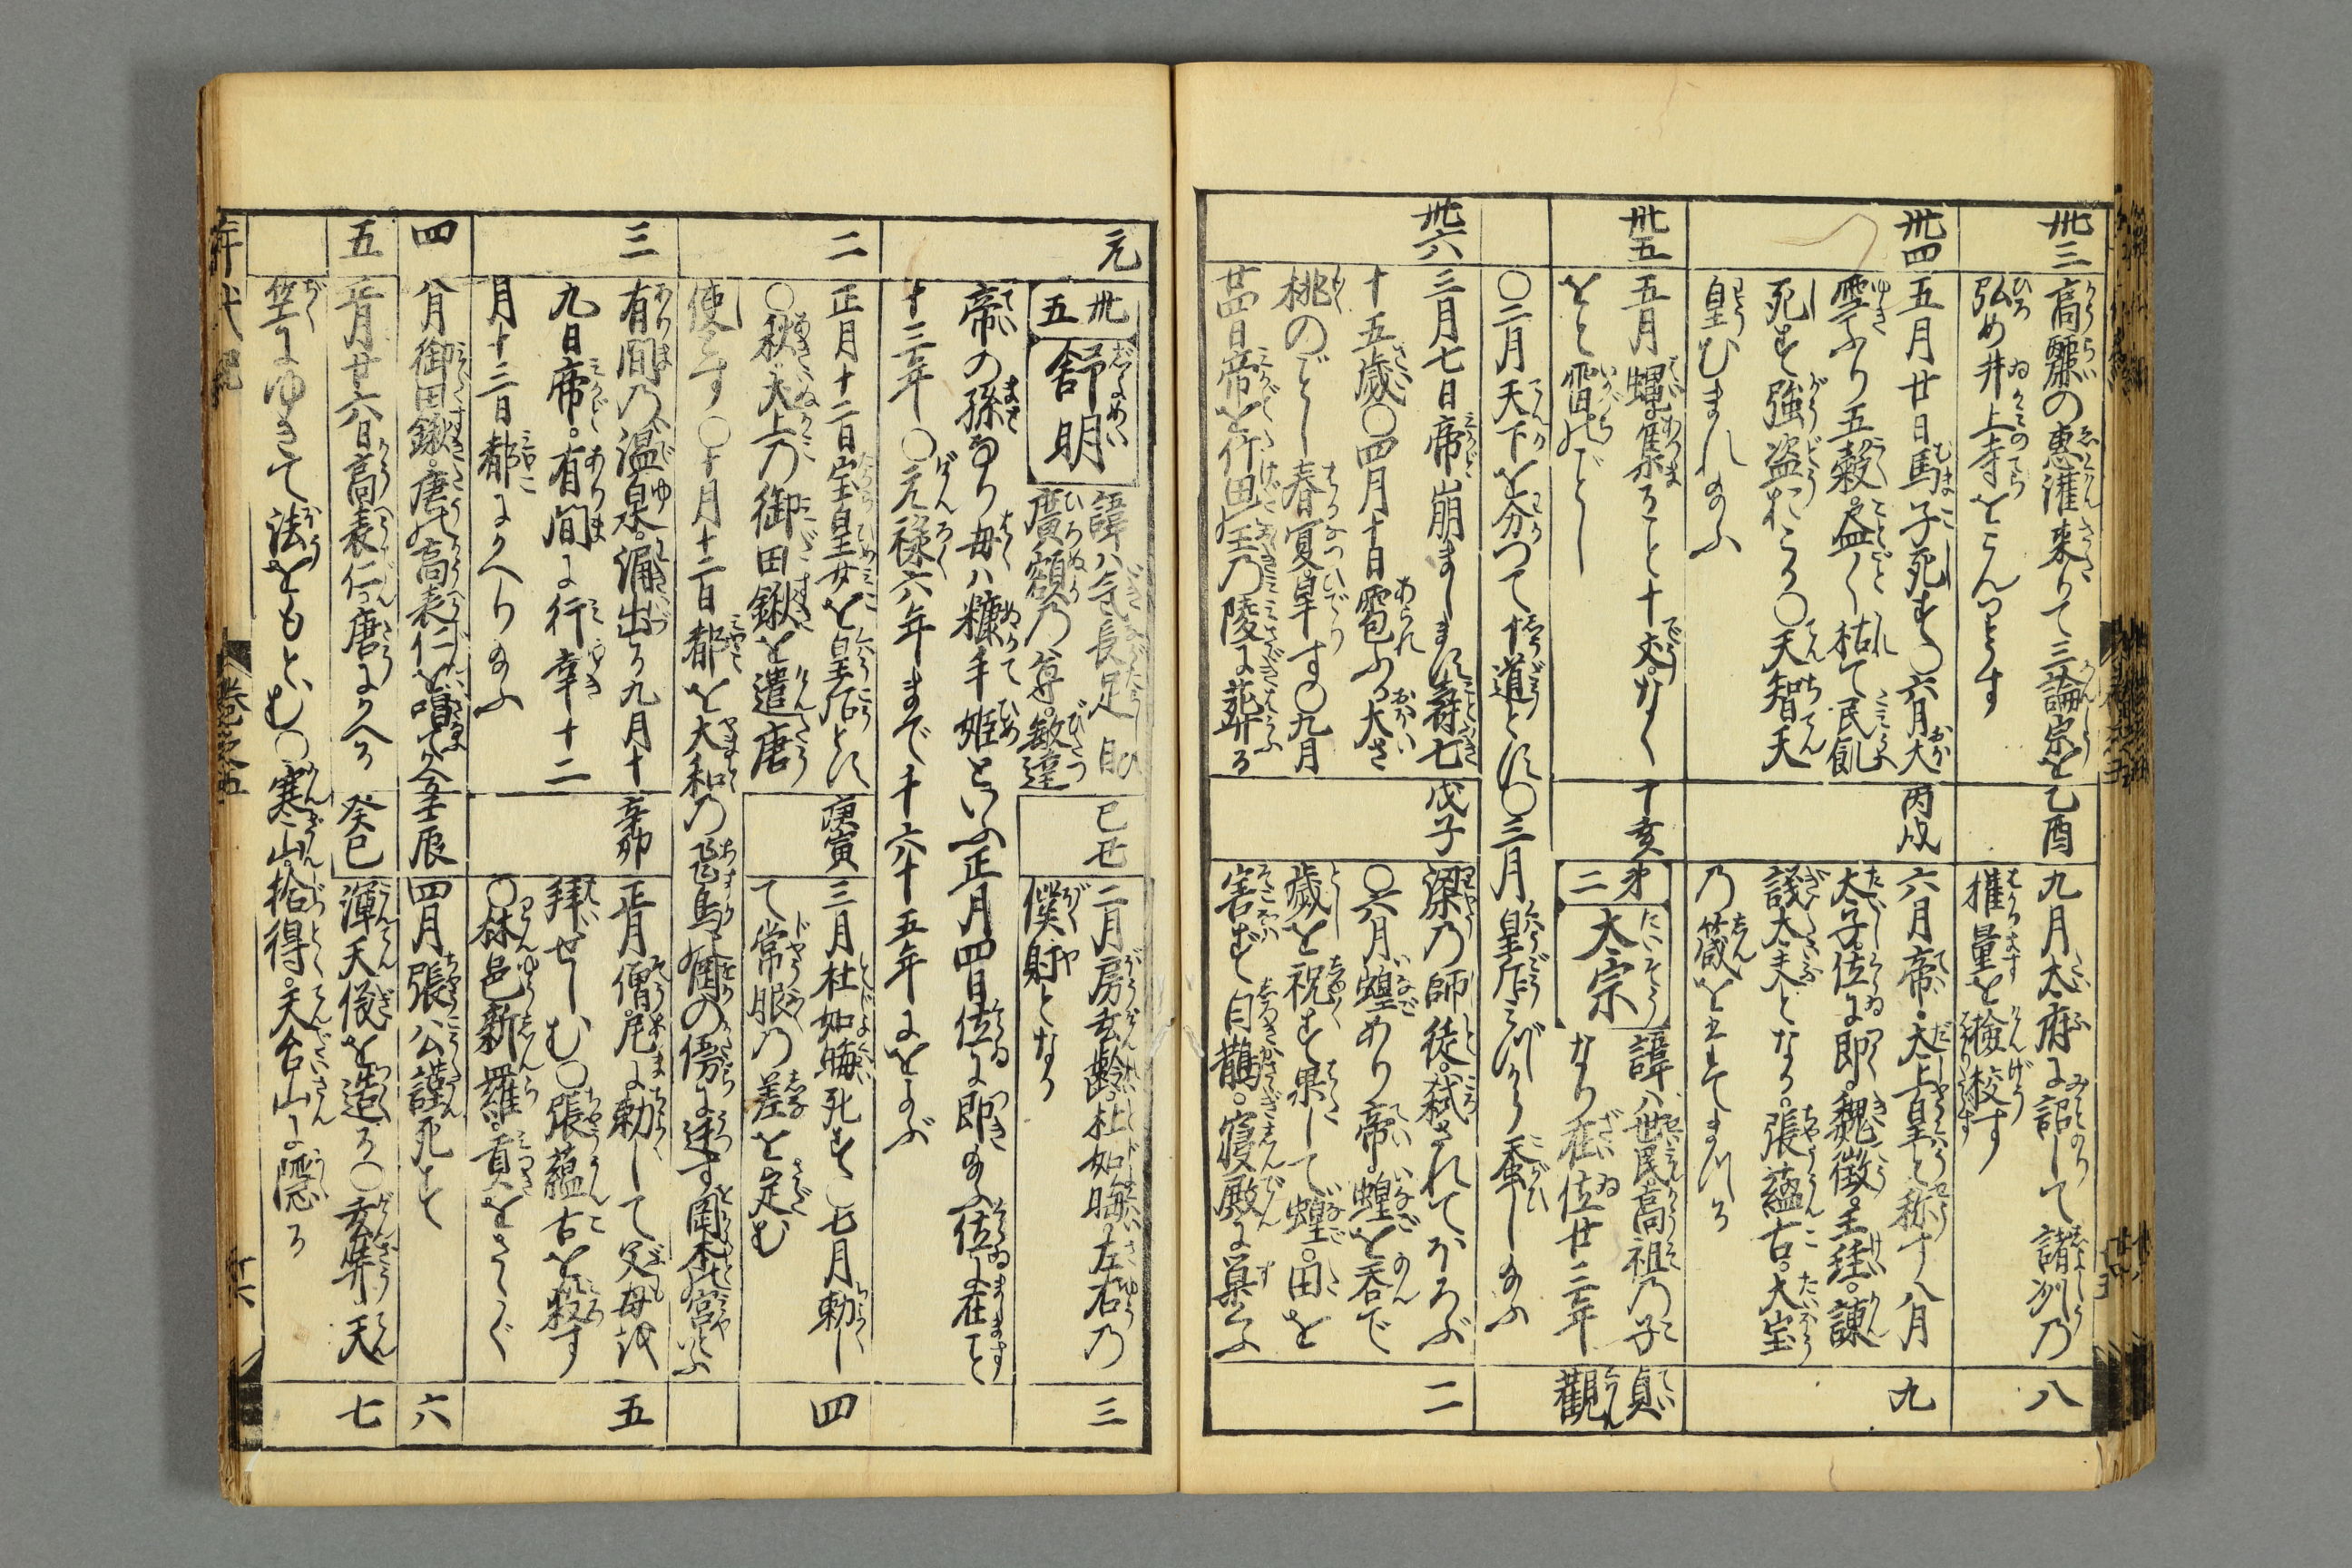 卅三
高麗の恵灌来りて三論宗を
弘め井上寺をこんりうす
乙酉
九月太府に詔して諸州の
権量を撿挍す
八
卅四
五月廿日馬子死す〇六月大
雪ふり五穀尽く枯て民飢
死す強盗おこる〇天智天
皇むまれ給ふ
丙戌
六月帝太上皇と称す八月
太子位に即魏徴王珪諌
議大夫となる張蘊古大宝
乃箴を上てまつる
九
卅五
五月蠅集ること十丈なく
をと雷のごとし
丁亥
第二
太宗
諱ハ世民高祖乃子
なり在位廿三年
貞観
〇二月天下を分つて十道とす〇三月皇后みづから蚕し給ふ
卅六
三月七日帝崩まします寿七
十五歳〇四月十日雹ふる大さ
桃のごとし春夏旱す〇九月
廿四日帝を竹田王乃陵に葬る
戊子
梁乃師徒弑されてほろぶ
〇六月蝗あり帝蝗を呑で
歳を祝す果して蝗田を
害せず白鵲寝殿に巣くふ
二
元
卅五
舒明
諱ハ息長足日
広額乃尊敏達
己丑
二月房玄齢杜如晦左右乃
僕射となる
三
帝の孫なり母ハ糠手姫といふ正月四日位に即給ふ位に在こと
十三年〇元禄六年まで千六十五年にをよぶ
二
正月十二日宝皇女を皇后とす
〇秋犬上乃御田鍬を遣唐
使とす〇十月十二日都を大和乃飛鳥岡の傍に迁す岡本の宮といふ
庚寅
三月杜如晦死す〇七月勅し
て常服乃差を定む
四
三
有間乃温泉湧出る九月十
九日帝有間に行幸十二
月十三日都にかへり給ふ
辛卯
正月僧尼に勅して父母を
拝せしむ〇張蘊古を殺す
〇林邑新羅貢をさゝぐ
五
四
八月御田鍬唐の高表仁を
壬辰
四月張公謹死す
六
五
正月廿六日高表仁唐にかへる
癸巳
渾天儀を造る〇玄奘天
七
竺にゆきて法をもとむ〇寒山拾得天台山に隠る
年代記